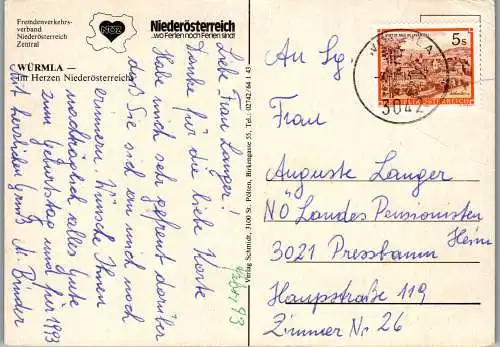 Fremdenverkehrs-
verband
Niederösterreich
Zentral
NÖZ
Niederösterreich
...wo Ferien noch Ferien sind!
WÜRMLA —
im Herzen Niederösterreichs
Liebe Frau Langer!
Danke für die liebe Karte
Habe mich sehr gefreut darüber
daß Sie sich an mich
erinnern. Wünsche Ihnen
nachträglich alles Gute
zum Geburtstag und für 1993
Mit herzlichen Grüß M. Binder
Verlag Schmidt, 3100 St. Pölten, Birkengasse 55, Tel.: 02742/64 1 43
5s
REPUBLIK ÖSTERREICH
3042
An Sg
Frau
Auguste Langer
NÖ Landes Pensionisten
Heim
3021 Pressbaum
Hauptstraße 119
Zimmer Nr 26